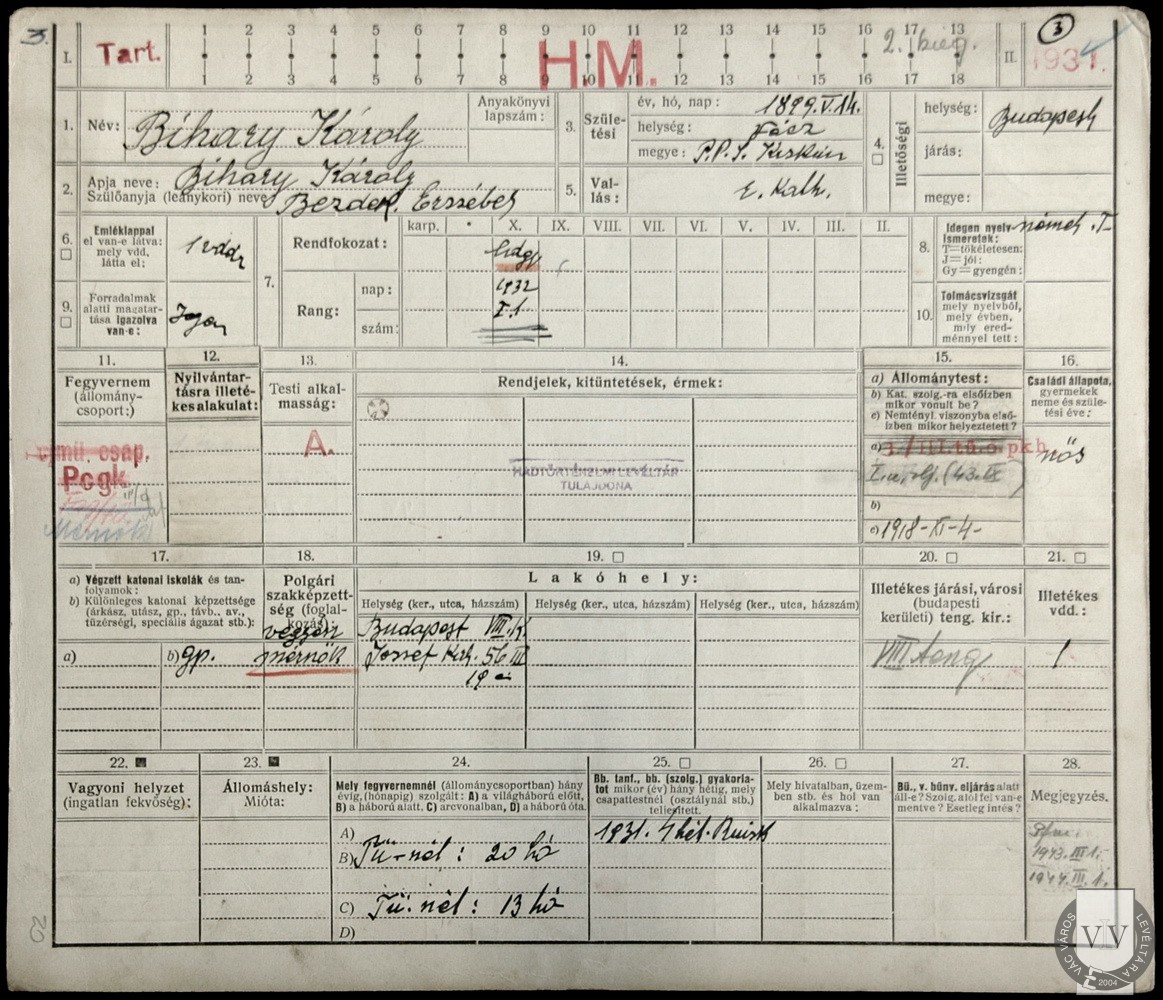 3.
3
I.
Tart.
1 2 3 4 5 6 7 8 9 10 11 12 13 14 15 16 17 13
H.M.
1 2 3 4 5 6 7 8 9 10 11 12 13 14 15 16 17 18
II.
1931.
1. Név: Bihary Károly
Anyakönyvi lapszám:
3. Születési
év, hó, nap: 1899. V. 14.
helység:
megye: P.P.S. Kiskún
4. Illetőségi
helység: Budapest
járás:
megye:
2. Apja neve: Bihary Károly
Szülőanyja (leánykori) neve Bezdek Erzsébet
5. Vallás:
6. Emléklappal
el van-e látva:
mely vdd.
látta el:
1 vdd
7.
Rendfokozat:
karp. • X. IX. VIII. VII. VI. V. IV. III. II.
Rang:
nap: 1932
szám: X. 1
8. Idegen nyelv-
ismeretek:
T=tökéletesen:
J=jól:
Gy=gyengén:
német. T
9. Forradalmak
alatti magatar-
tása igazolva
van-e:
Igen
10. Tolmácsvizsgát
mely nyelvből,
mely évben,
mily ered-
ménnyel tett:
11.
Fegyvernem
(állomány-
csoport:)
mű. csap.
Pcgk
Mérnök
12.
Nyilvántar-
tásra illeté-
kes alakulat:
13.
Testi alkal-
masság:
A.
14.
Rendjelek, kitüntetések, érmek:
HADTÖRTÉNELMI LEVÉLTÁR
TULAJDONA
15.
a) Állománytest:
b) Kat. szolg.-ra elsőízben
mikor vonult be?
c) Nemtényl. viszonyba első-
ízben mikor helyeztetett?
a)
b)
c) 1918-XI-4-
16.
Családi állapota,
gyermekek
neme és szüle-
tési éve:
nős
17.
a) Végzett katonai iskolák és tan-
folyamok:
b) Különleges katonai képzettsége
(árkász, utász, gp., távb., av.,
tüzérségi, speciális ágazat stb.):
a)
b) gp.
18.
Polgári
szakképzett-
ség (foglal-
kozás):
vegyész
mérnök
19.
Lakóhely:
Helység (ker., utca, házszám)
Helység (ker., utca, házszám)
Helység (ker., utca, házszám)
Budapest VIII. k.
József krt. 56. III
19
20.
Illetékes járási, városi
(budapesti
kerületi) teng. kir.:
VIII teng
21.
Illetékes
vdd.:
1
22.
Vagyoni helyzet
(ingatlan fekvőség):
23.
Állomáshely:
Mióta:
24.
Mely fegyvernemnél (állománycsoportban) hány
évig, (hónapig) szolgált: A) a világháború előtt,
B) a háború alatt, C) arcvonalban, D) a háború óta.
A)
B) Tü-nél: 20 hó
C) Tü. nél: 13 hó
D)
25.
Bb. tanf., bb. (szolg.) gyakorla-
tot mikor (év) hány hétig, mely
csapattestnél (osztálynál stb.)
teljesített.
1931. 4 hét.
26.
Mely hivatalban, üzem-
ben stb. és hol van
alkalmazva:
27.
Bű., v. hűnv. eljárás alatt
áll-e? Szolg. alól fel van-e
mentve? Esetleg intés?
28.
Megjegyzés.
1943. III. 1.
1944. III. 1.
20
VÁC VÁROS LEVÉLTÁRA
2004